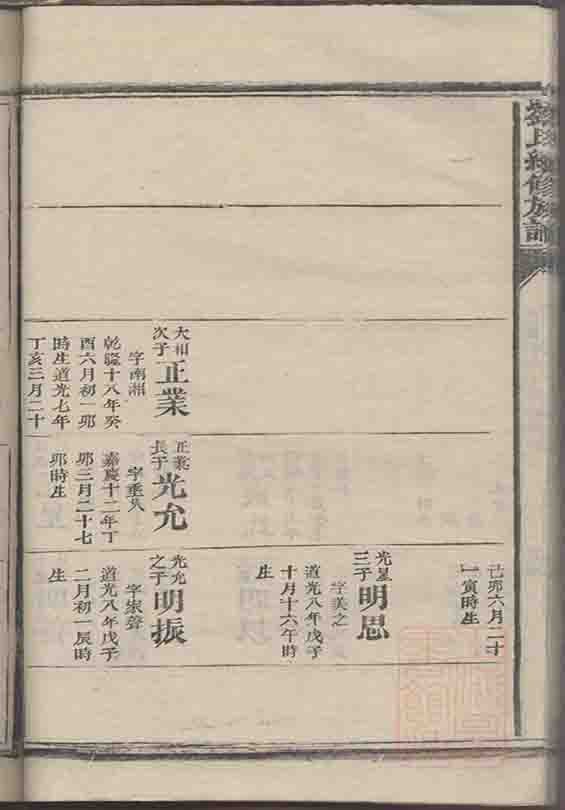 劉氏續修族譜
己卯六月二十
一寅時生
光星
三子
明思
字美之
道光八年戊子
十月十六午時
生
大相
次子
正業
字南湘
乾隆十八年癸
酉六月初一卯
時生道光七年
丁亥三月二十
正業
長子
光允
字垂久
嘉慶十二年丁
卯三月二十七
卯時生
光允
之子
明振
字家聲
道光八年戊子
二月初一辰時
生